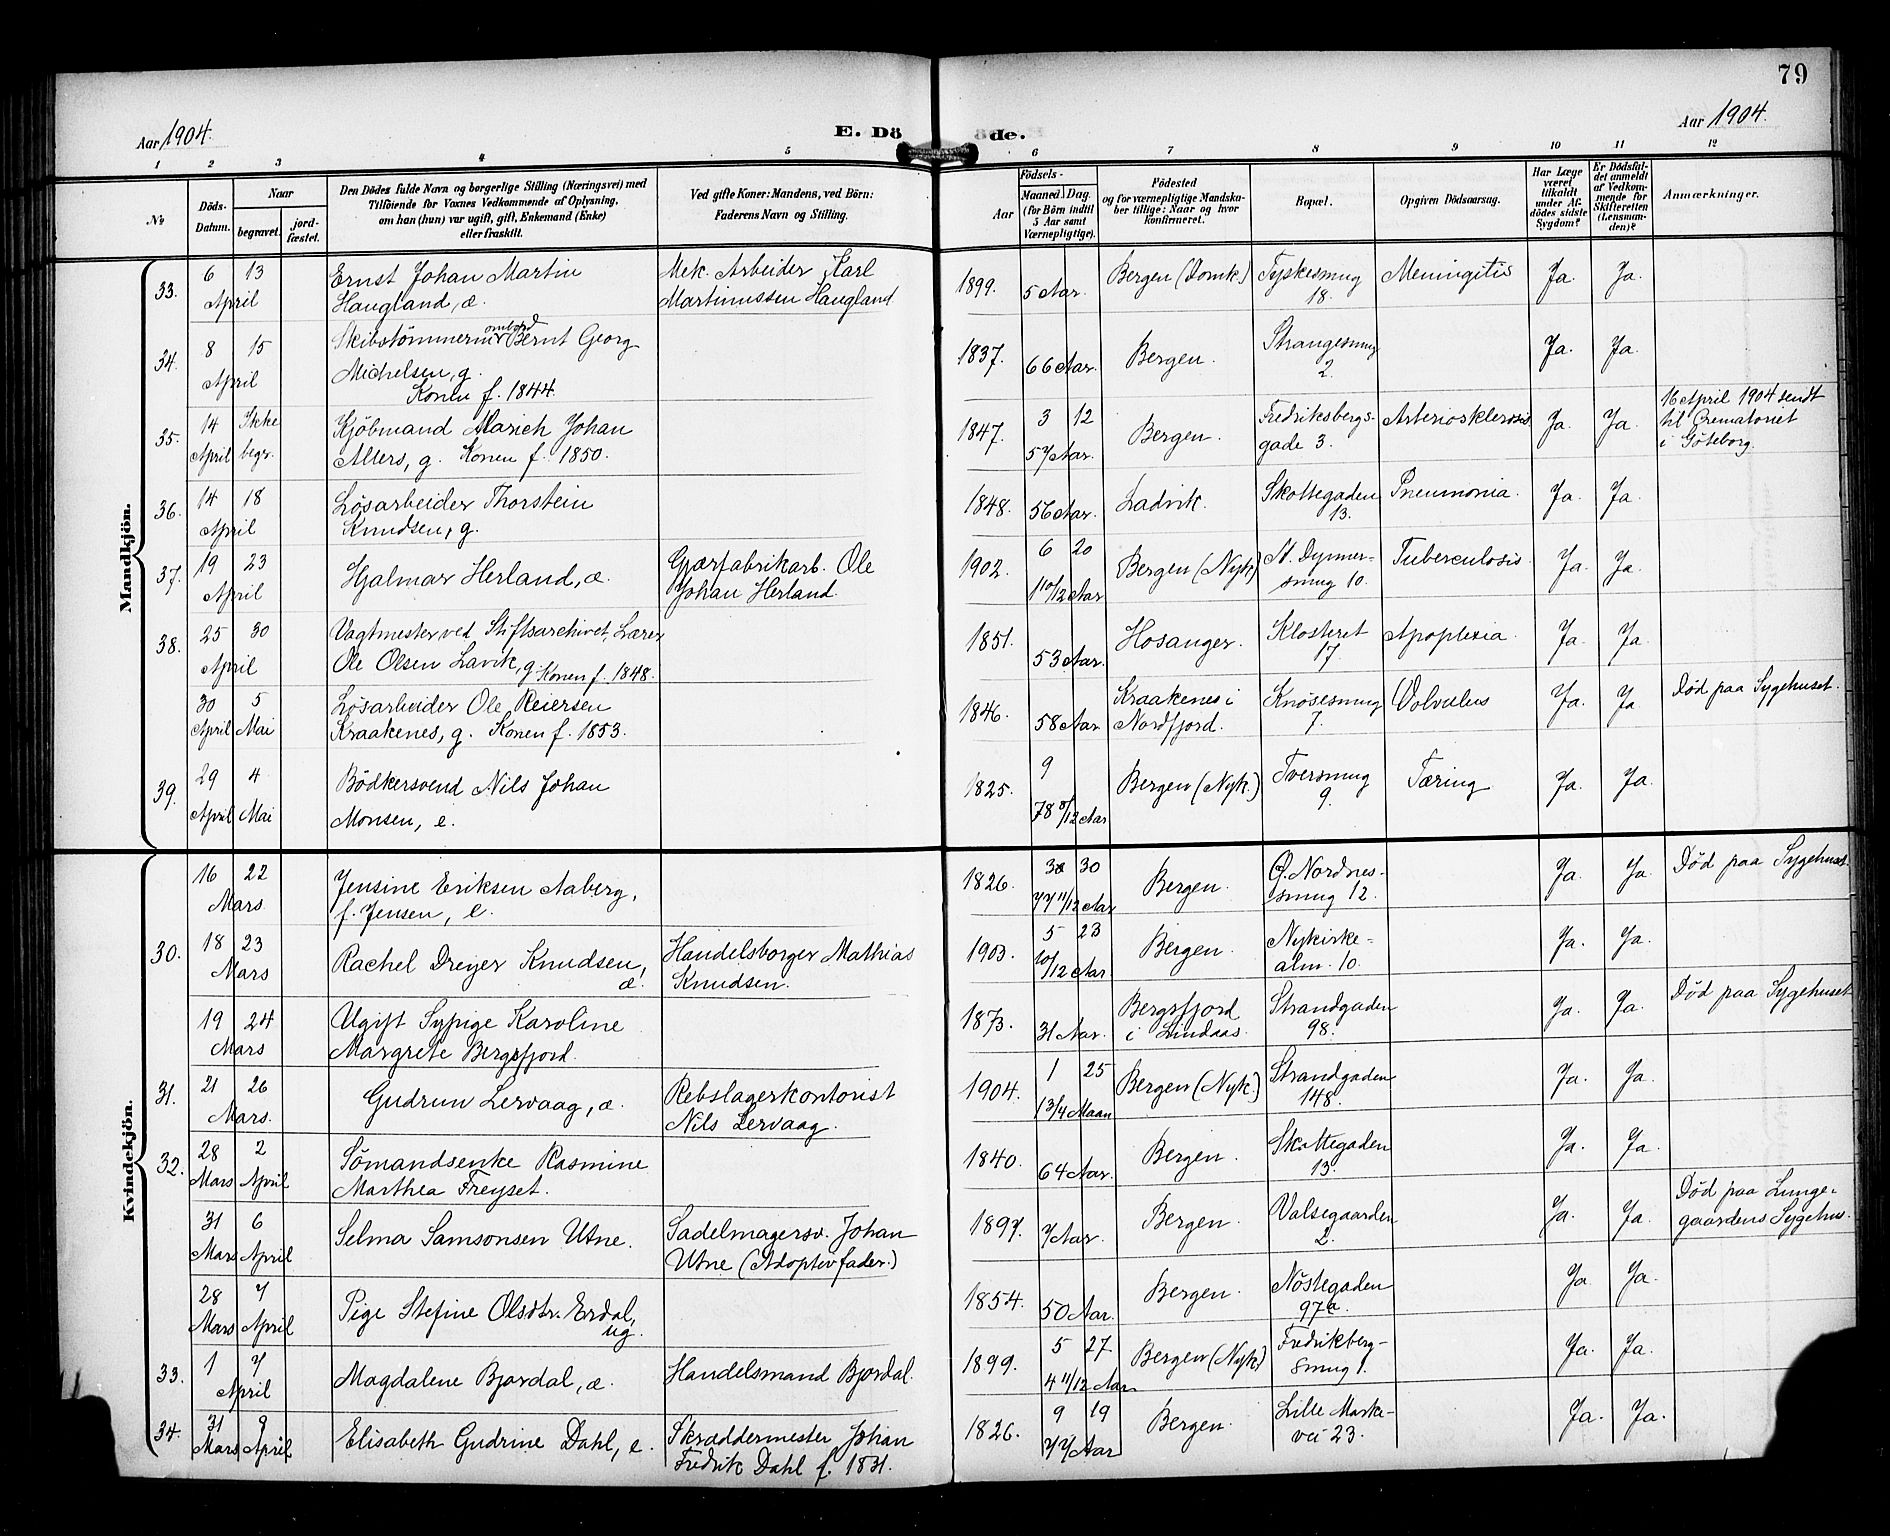 79
Aar 1904.
E. Dö
de.
Aar 1904.
1 2 3 4 5 6 7 8 9 10 11 12
No
Döds-
Datum.
Naar
begravet.
jord-
fæstet.
Den Dödes fulde Navn og borgerlige Stilling (Næringsvei) med
Tilföiende for Voxnes Vedkommende af Oplysning,
om han (hun) var ugift, gift, Enkemand (Enke)
eller fraskilt.
Ved gifte Koner: Mandens, ved Börn:
Faderens Navn og Stilling.
Födsels-
Aar
Maaned. Dag.
(for Börn indtil
5 Aar samt
Værnepligtige).
Födested
og for værnepligtige Mandska-
ber tillige: Naar og hvor
konfirmeret.
Bopæl.
Opgiven Dödsaarsag.
Har Læge
været
tilkaldt
under Af-
dödes sidste
Sygdom?
Er Dödsfal-
det anmeldt
af Vedkom-
mende for
Skifteretten
(Lensman-
den)?
Anmærkninger.
Mandkjön.
33. 6 13 April
Ernst Johan Martin
Haugland, æ.
Mek. Arbeider Karl
Martinussen Haugland
1899. 5 Aar.
Bergen (Domk.)
Tyskesmug
18.
Meningitis
Ja. Ja.
34. 8 15 April
ombord
Skibstømmerm. Bernt Georg
Michelsen, g.
Konen f. 1844.
1837. 66 Aar.
Bergen.
Strangesmug
2.
Ja. Ja.
35. 14 April Ikke begr.
Kjöbmand Alarich Johan
Allers, g. Konen f. 1850.
1847. 3 12
57 Aar.
Bergen.
Fredriksbergs-
gade 3.
Arteriosklerosis
Ja. Ja.
16 April 1904 sendt
til Crematoriet
i Göteborg.
36. 14 18 April
Løsarbeider Thorstein
Knudsen, g.
1848. 56 Aar.
Ladvik.
Skottegaden
13.
Pneumonia.
Ja. Ja.
37. 19 23 April
Hjalmar Herland, æ.
Gjærfabrikarb. Ole
Johan Herland.
1902. 6 20
1 10/12 Aar
Bergen (Nyk)
St. Dymmer-
smug 10.
Tuberculosis.
Ja. Ja.
38. 25 30 April
Vagtmester ved Stiftsarchivet, Lærer
Ole Olsen Lavik, g. Konen f. 1848.
1851. 53 Aar.
Hosanger.
Klosteret
17.
Apoplexia.
Ja. Ja.
30 April 5 Mai
Løsarbeider Ole Reiersen
Kraakenes, g. Konen f. 1853.
1846. 58 Aar.
Kraakenes i
Nordfjord.
Knösesmug
7.
Volvulus
Ja. Ja
Død paa Sygehuset.
39. 29 April 4 Mai
Bödkersvend Nils Johan
Monsen, e.
1825. 9
78 5/12 Aar
Bergen (Nyk.)
Tversmug
9.
Tæring
Ja. Ja.
Kvindekjön.
16 22 Mars
Jensine Eriksen Aaberg,
f. Jensen, e.
1826. 3 30
77 11/12 Aar
Bergen.
Ø. Nordnes-
smug 12.
Ja. Ja.
Død paa Sygehuset
30. 18 23 Mars
Rachel Dreyer Knudsen,
æ.
Handelsborger Mathias
Knudsen.
1903. 5 23
10/12 Aar.
Bergen.
Nykirke-
alm. 10.
Ja. Ja.
19 24 Mars
Ugift Sypige Karoline
Margrete Bergsfjord.
1873. 31 Aar.
Bergsfjord
i Lindaas.
Strandgaden
98.
Ja. Ja.
Død paa Sygehuset
31. 21 26 Mars.
Gudrun Lervaag, æ.
Rebslagerkontorist
Nils Lervaag.
1904. 1 25
1 3/4 Maan
Bergen (Nyk.)
Strandgaden
148.
Ja. Ja.
32. 28 Mars 2 April
Sömandsenke Rasmine
Marthea Freyset.
1840. 64 Aar.
Bergen.
Skottegaden
13.
Ja. Ja.
31 Mars 6 April
Selma Samsonsen Utne.
Sadelmagersv. Johan
Utne (Adoptivfader.)
1897. 7 Aar.
Bergen.
Valsegaarden
2.
Ja. Ja.
Død paa Lunge-
gaardens Sygehus.
28 Mars 7 April
Pige Stefine Olsdtr. Erdal,
ug.
1854. 50 Aar.
Bergen.
Nöstegaden
97a.
Ja Ja.
33. 1 7 April
Magdalene Bjordal, æ.
Handelsmand Bjordal.
1899. 5 27
4 11/12 Aar
Bergen (Nyk)
Fredrikberg-
smug 1.
Ja. Ja.
34. 31 Mars 9 April
Elisabeth Gudrine Dahl, e.
Skræddermester Johan
Fredrik Dahl f. 1831.
1826. 9 19
77 Aar
Bergen.
Lille Marke-
vei 23.
Ja. Ja.